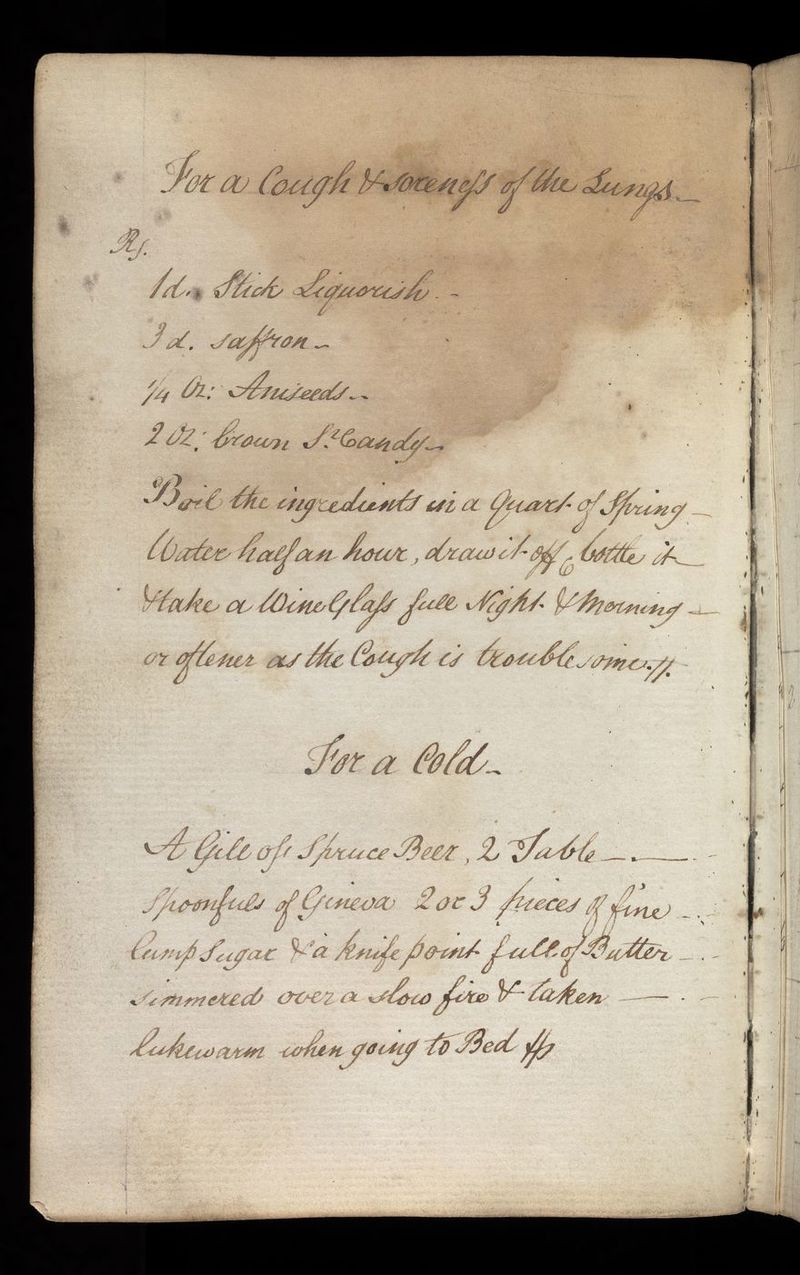 For a Cough & soreness of the Lungs
Rs.
1d. Stick Liquorish. -
3d. saffron -
1/4 Oz: Aniseeds -
2 Oz: brown Sr. Candy -
Boil the ingredients in a Quart of Spring -
Water half an hour, draw it off, bottle it -
& take a Wine Glass full Night & Morning -
or oftener as the Cough is troublesome.
For a Cold -
A Gill of Spruce Beer, 2 Table -
Spoonfuls of Gineva 2 or 3 pieces of fine -
lump Sugar & a knife point full of Butter -
simmered over a slow fire & taken -
lukewarm when going to Bed